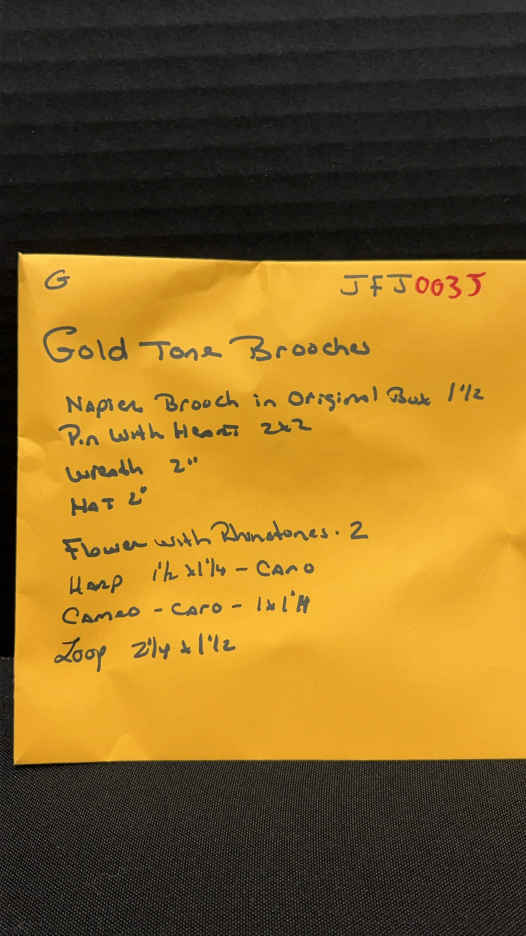 G
JFJ0035
Gold Tone Brooches
Napier Brooch in Original Box 1 1/2
Pin With Heart 2x2
Wreath 2"
Hat 2"
Flower with Rhinstones. 2
Harp 1 1/2 x 1 1/4 - Caro
Cameo - Caro - 1 x 1
Loop 2 1/4 x 1 1/2